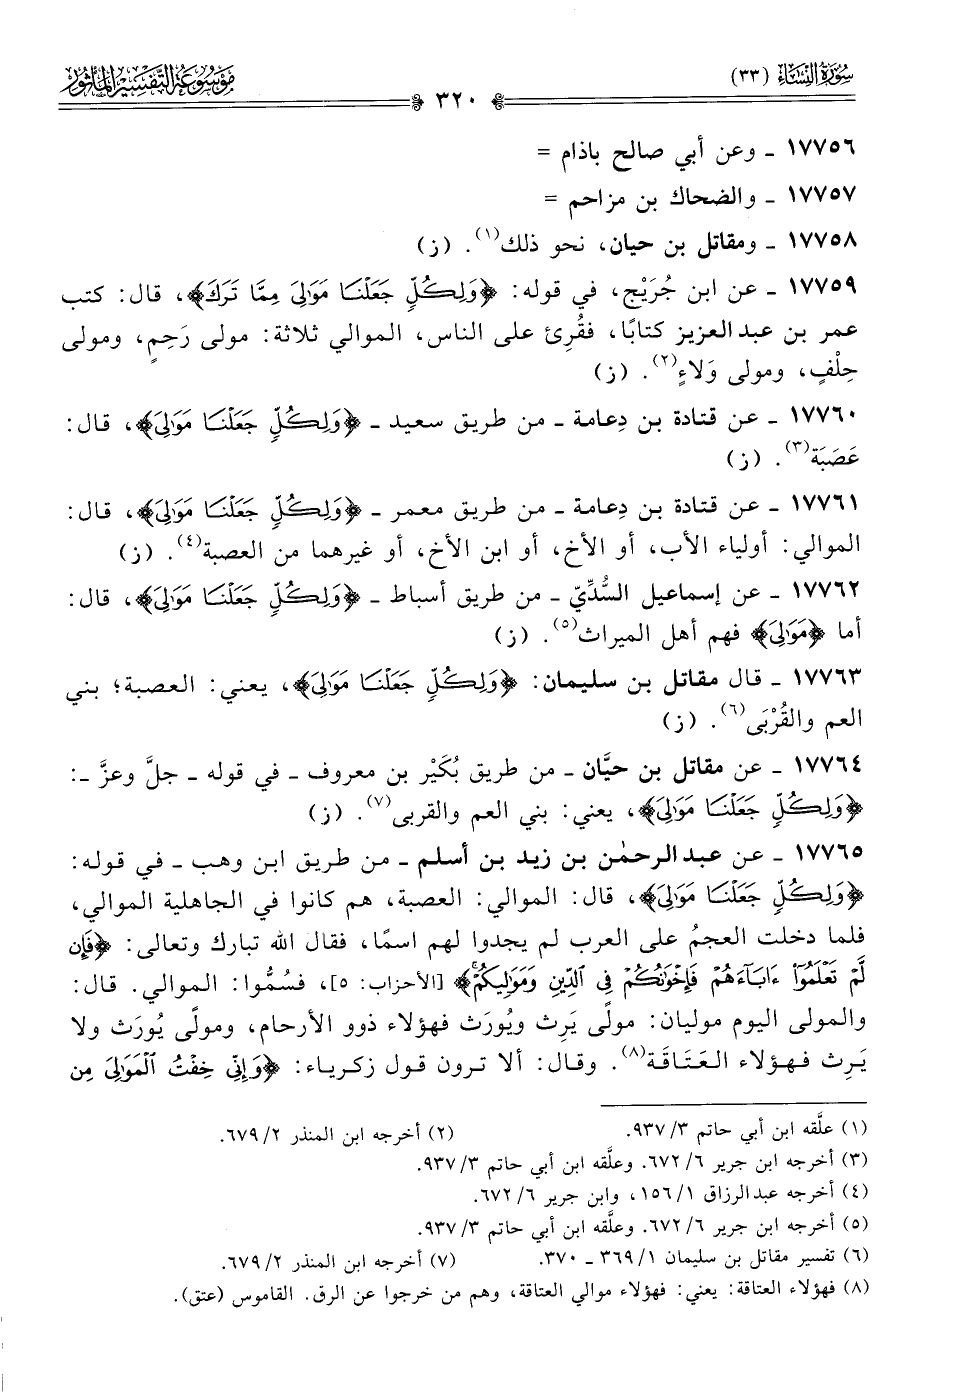 سُورَةُ النِّسَاء (٣٣)
٣٢٠
مَوْسُوعَةُ التَّفْسِيرِ المَأْثُور
١٧٧٥٦ ـ وعن أبي صالح باذام =
١٧٧٥٧ ـ والضحاك بن مزاحم =
١٧٧٥٨ ـ ومقاتل بن حيان، نحو ذلك(١). (ز)
١٧٧٥٩ ـ عن ابن جُرَيْج، في قوله: ﴿وَلِكُلٍّ جَعَلْنَا مَوَٰلِيَ مِمَّا تَرَكَ﴾، قال: كتب
عمر بن عبد العزيز كتابًا، فقُرِئ على الناس، الموالي ثلاثة: مولى رَحِمٍ، ومولى
حِلْفٍ، ومولى وَلاءٍ(٢). (ز)
١٧٧٦٠ ـ عن قتادة بن دِعامة ـ من طريق سعيد ـ ﴿وَلِكُلٍّ جَعَلْنَا مَوَٰلِيَ﴾، قال:
عَصَبَة(٣). (ز)
١٧٧٦١ ـ عن قتادة بن دِعامة ـ من طريق معمر ـ ﴿وَلِكُلٍّ جَعَلْنَا مَوَٰلِيَ﴾، قال:
الموالي: أولياء الأب، أو الأخ، أو ابن الأخ، أو غيرهما من العصبة(٤). (ز)
١٧٧٦٢ ـ عن إسماعيل السُّدِّيّ ـ من طريق أسباط ـ ﴿وَلِكُلٍّ جَعَلْنَا مَوَٰلِيَ﴾، قال:
أما ﴿مَوَٰلِيَ﴾ فهم أهل الميراث(٥). (ز)
١٧٧٦٣ ـ قال مقاتل بن سليمان: ﴿وَلِكُلٍّ جَعَلْنَا مَوَٰلِيَ﴾، يعني: العصبة؛ بني
العم والقُرْبَى(٦). (ز)
١٧٧٦٤ ـ عن مقاتل بن حيَّان ـ من طريق بُكَيْر بن معروف ـ في قوله ـ جلَّ وعزَّ ـ:
﴿وَلِكُلٍّ جَعَلْنَا مَوَٰلِيَ﴾، يعني: بني العم والقربى(٧). (ز)
١٧٧٦٥ ـ عن عبد الرحمٰن بن زيد بن أسلم ـ من طريق ابن وهب ـ في قوله:
﴿وَلِكُلٍّ جَعَلْنَا مَوَٰلِيَ﴾، قال: الموالي: العصبة، هم كانوا في الجاهلية الموالي،
فلما دخلت العجمُ على العرب لم يجدوا لهم اسمًا، فقال الله تبارك وتعالى: ﴿فَإِن
لَّمْ تَعْلَمُوٓا۟ ءَابَآءَهُمْ فَإِخْوَٰنُكُمْ فِى ٱلدِّينِ وَمَوَٰلِيكُمْ﴾ [الأحزاب: ٥]، فسُمُّوا: الموالي. قال:
والمولى اليوم موليان: مولًى يَرِث ويُورَث فهؤلاء ذوو الأرحام، ومولًى يُورَث ولا
يَرِث فهؤلاء العَتَاقَة(٨). وقال: ألا ترون قول زكرياء: ﴿وَإِنِّى خِفْتُ ٱلْمَوَٰلِىَ مِن
(١) علَّقه ابن أبي حاتم ٣/ ٩٣٧. (٢) أخرجه ابن المنذر ٢/ ٦٧٩.
(٣) أخرجه ابن جرير ٦/ ٦٧٢. وعلَّقه ابن أبي حاتم ٣/ ٩٣٧.
(٤) أخرجه عبد الرزاق ١/ ١٥٦، وابن جرير ٦/ ٦٧٢.
(٥) أخرجه ابن جرير ٦/ ٦٧٢. وعلَّقه ابن أبي حاتم ٣/ ٩٣٧.
(٦) تفسير مقاتل بن سليمان ١/ ٣٦٩ ـ ٣٧٠. (٧) أخرجه ابن المنذر ٢/ ٦٧٩.
(٨) فهؤلاء العتاقة: يعني: فهؤلاء موالي العتاقة، وهم من خرجوا عن الرق. القاموس (عتق).